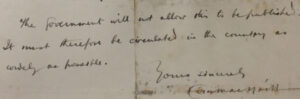 The Government will not allow this to be published.
It must therefore be circulated in the country as
widely as possible.
Yours sincerely